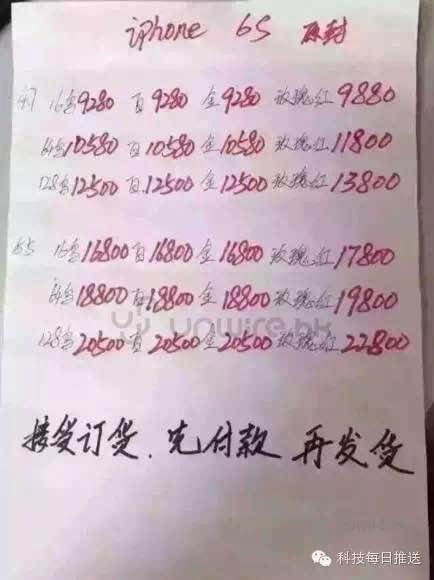 iPhone 6S 原封
4.7 16G 9280 白 9280 金 9280 玫瑰红 9880
64G 10580 白 10580 金 10580 玫瑰红 11800
128G 12500 白 12500 金 12500 玫瑰红 13800
5.5 16G 16800 白 16800 金 16800 玫瑰红 17800
64G 18800 白 18800 金 18800 玫瑰红 19800
unwire.hk
128G 20500 白 20500 金 20500 玫瑰红 22800
接货订货、先付款 再发货
科技每日推送